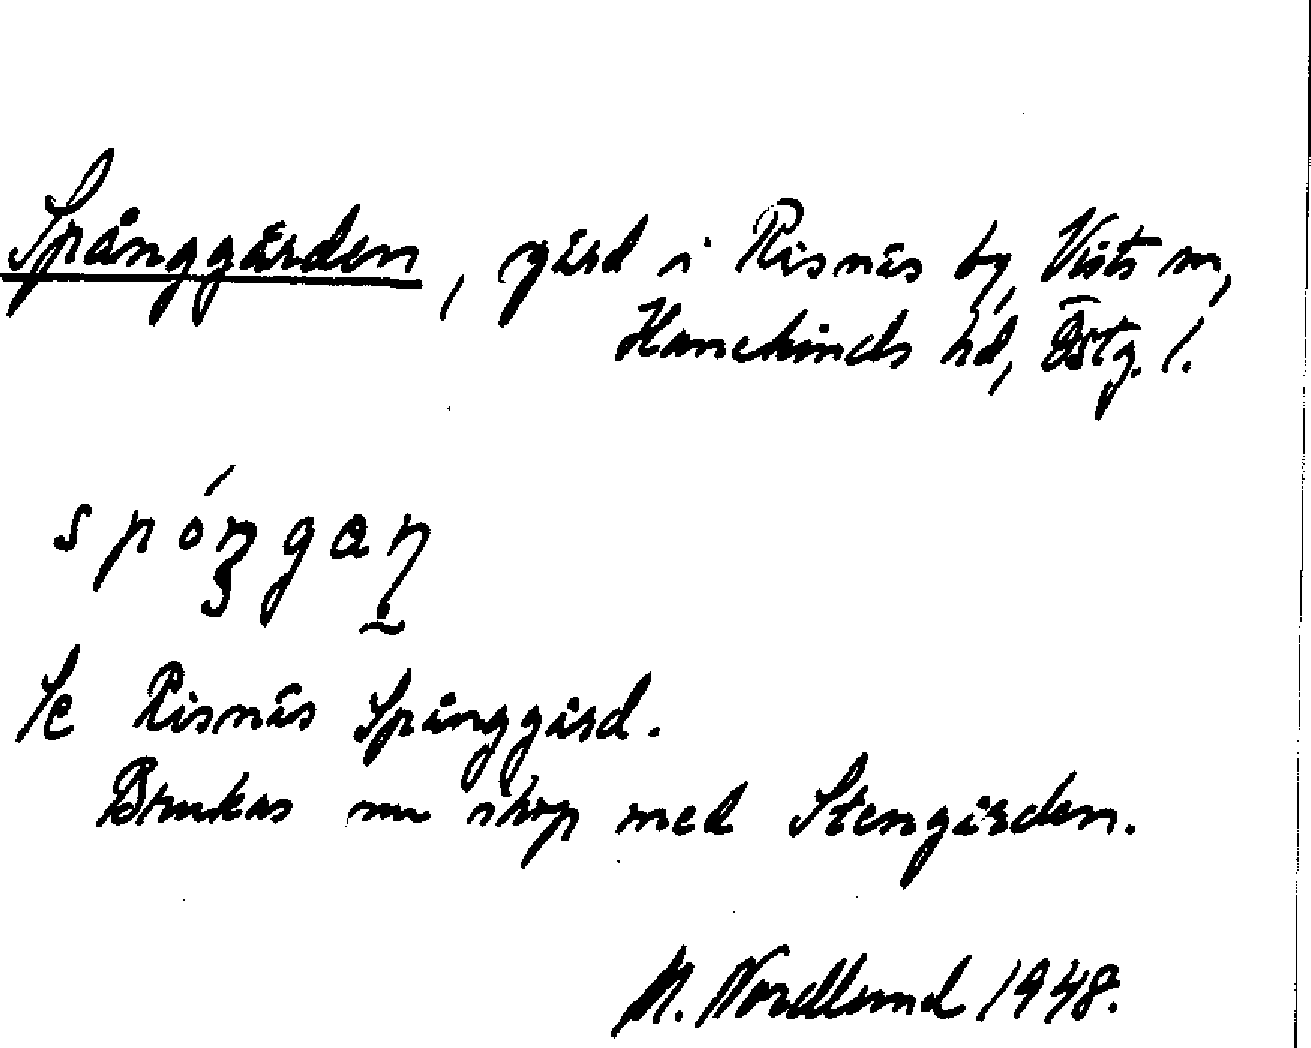 Spånggården, gård i Risnäs by, Vists sn,
Hanekinds hd, Östg. l.
spóŋgaɳ
Se Risnäs Spånggård.
Brukas nu ihop med Stengården.
M. Nordlund 1948.